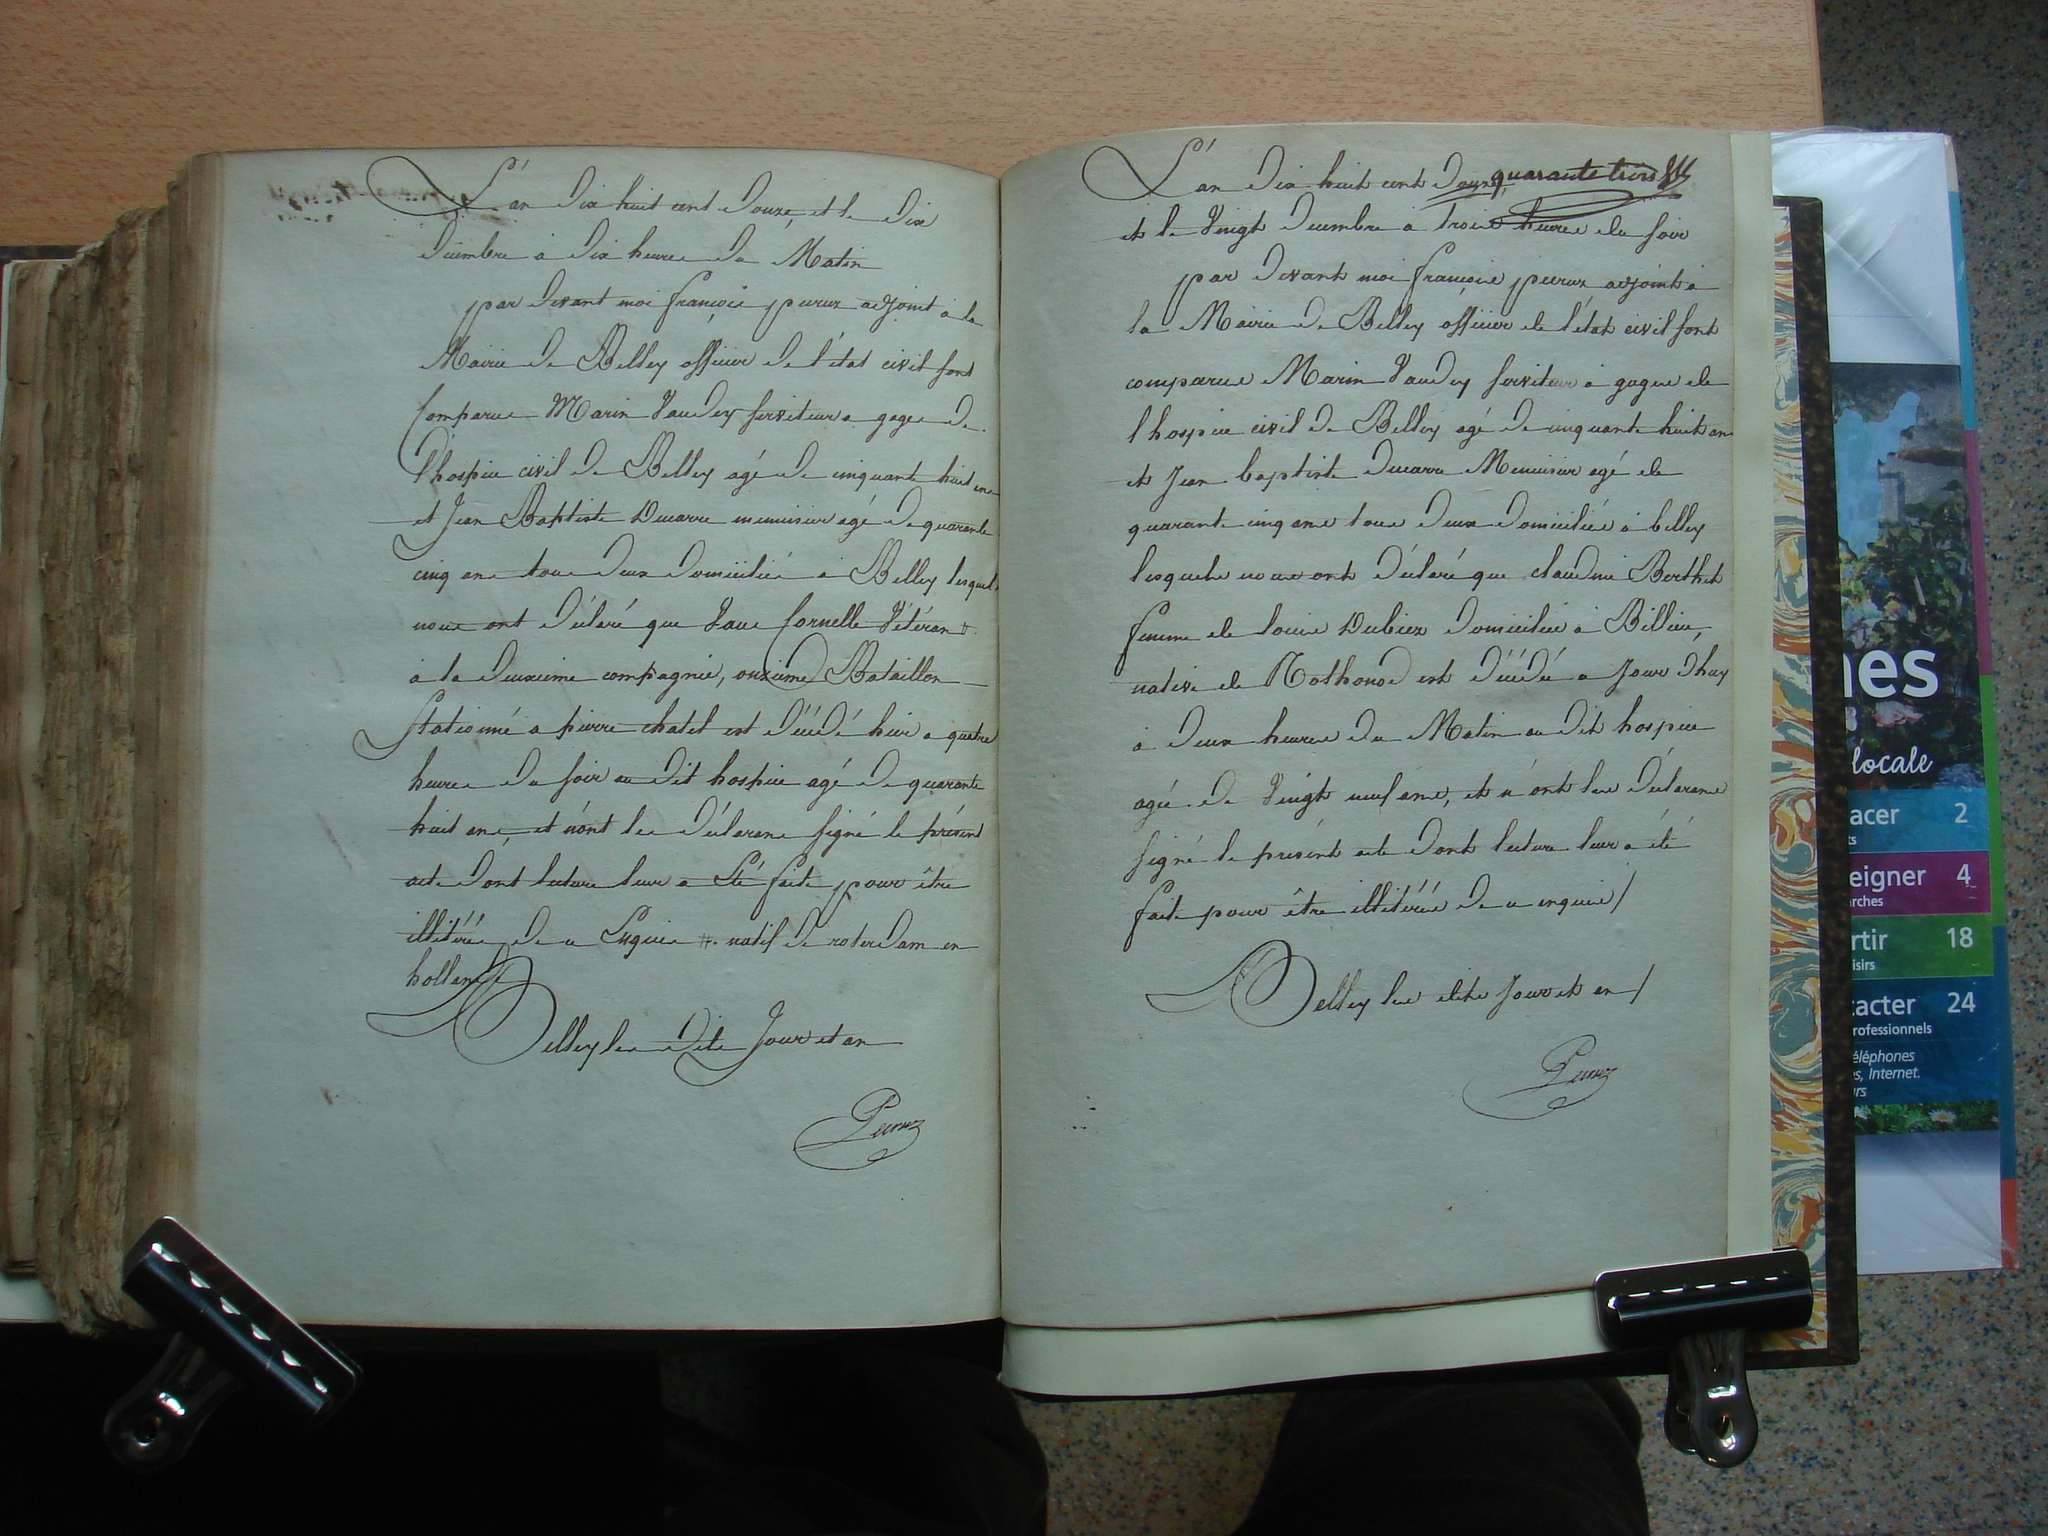 L'an dix huit cent douze, et le dix
décembre à dix heures du Matin
par devant moi françois peruz adjoint à la
Mairie de Belley officier de l'état civil sont
Comparus Marin Vaudey serviteur a gages de
l'hospice civil de Belley agé de cinquante huit ans
et Jean Baptiste Ducarre menuisier agé de quarante
cinq ans tous deux domiciliés à Belley lesquels
nous ont déclaré que Vaus Cornelle Vétéran #.
à la deuxieme compagnie, onzieme Bataillon
Stationné a pierre chatel est décédé hier a quatre
heures du soir au dit hospice agé de quarante
huit ans, et n'ont les déclarans signé le présent
acte dont lecture leur a Eté faite pour être
illitérés de ce Enquis #. natif de roterdam en
hollande
Belley les dits Jour et an
Peruz
L'an dix huit cent douze, quarante trois
et le Vingt décembre à trois heures du soir
par devant moi françois peruz adjoint à
la Mairie de Belley officier de l'état civil sont
comparus Marin Vaudey serviteur à gages de
l'hospice civil de Belley agé de cinquante huit ans
et Jean baptiste ducarre Menuisier agé de
quarante cinq ans tous deux domiciliés à belley
lesquels nous ont déclaré que claudine Berthet
femme de louis Dubiez domiciliée à Billieu,
native de Nothonod est décédée a Jour d'huy
à deux heures du Matin au dit hospice
agée de Vingt neuf ans, et n'ont les déclarans
signé le présent acte dont lecture leur a été
faite pour être illitérés de ce enquis /
Belley les dits Jour et an /
Peruz
nes
locale
acer 2
ts
eigner 4
arches
rtir 18
isirs
tacter 24
rofessionnels
éléphones
es, Internet.
urs